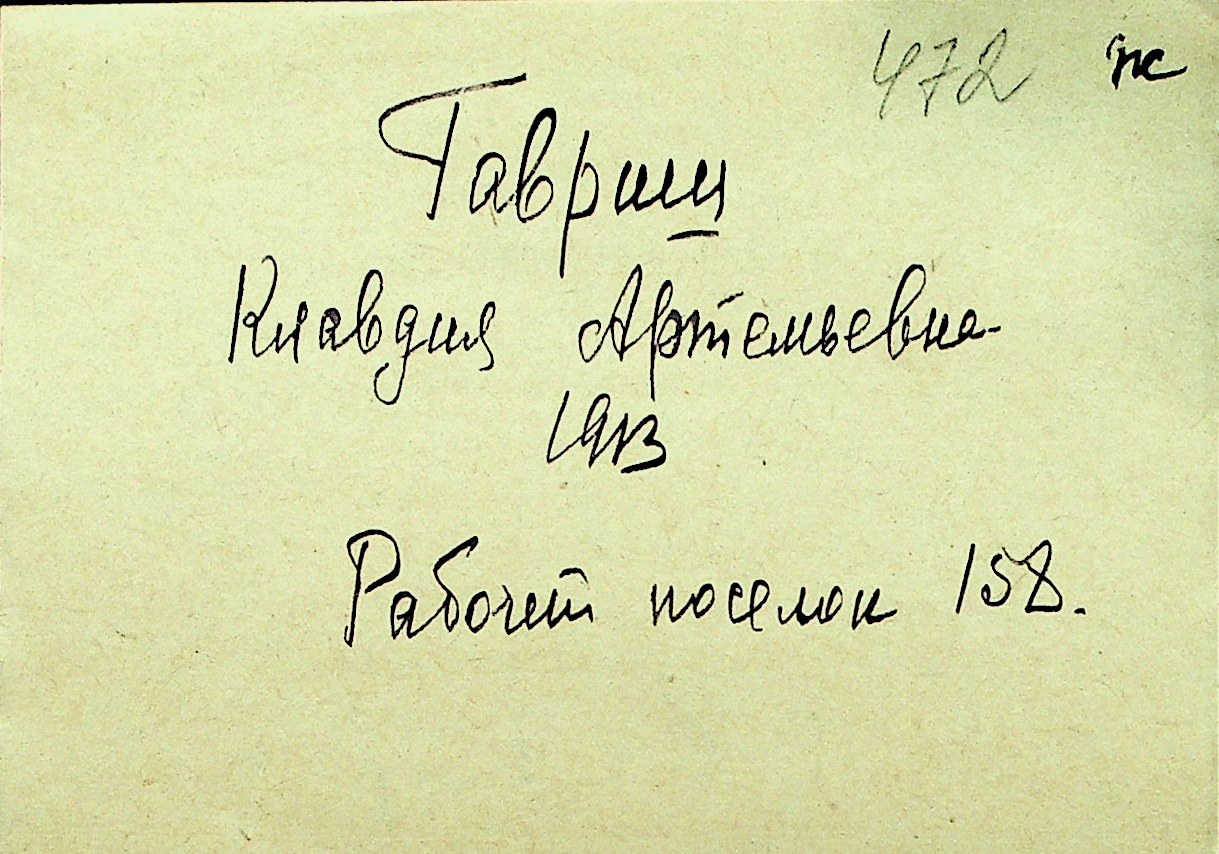 472 ж
Гавриш
Клавдия Артемьевна
1913
Рабочий поселок 158.